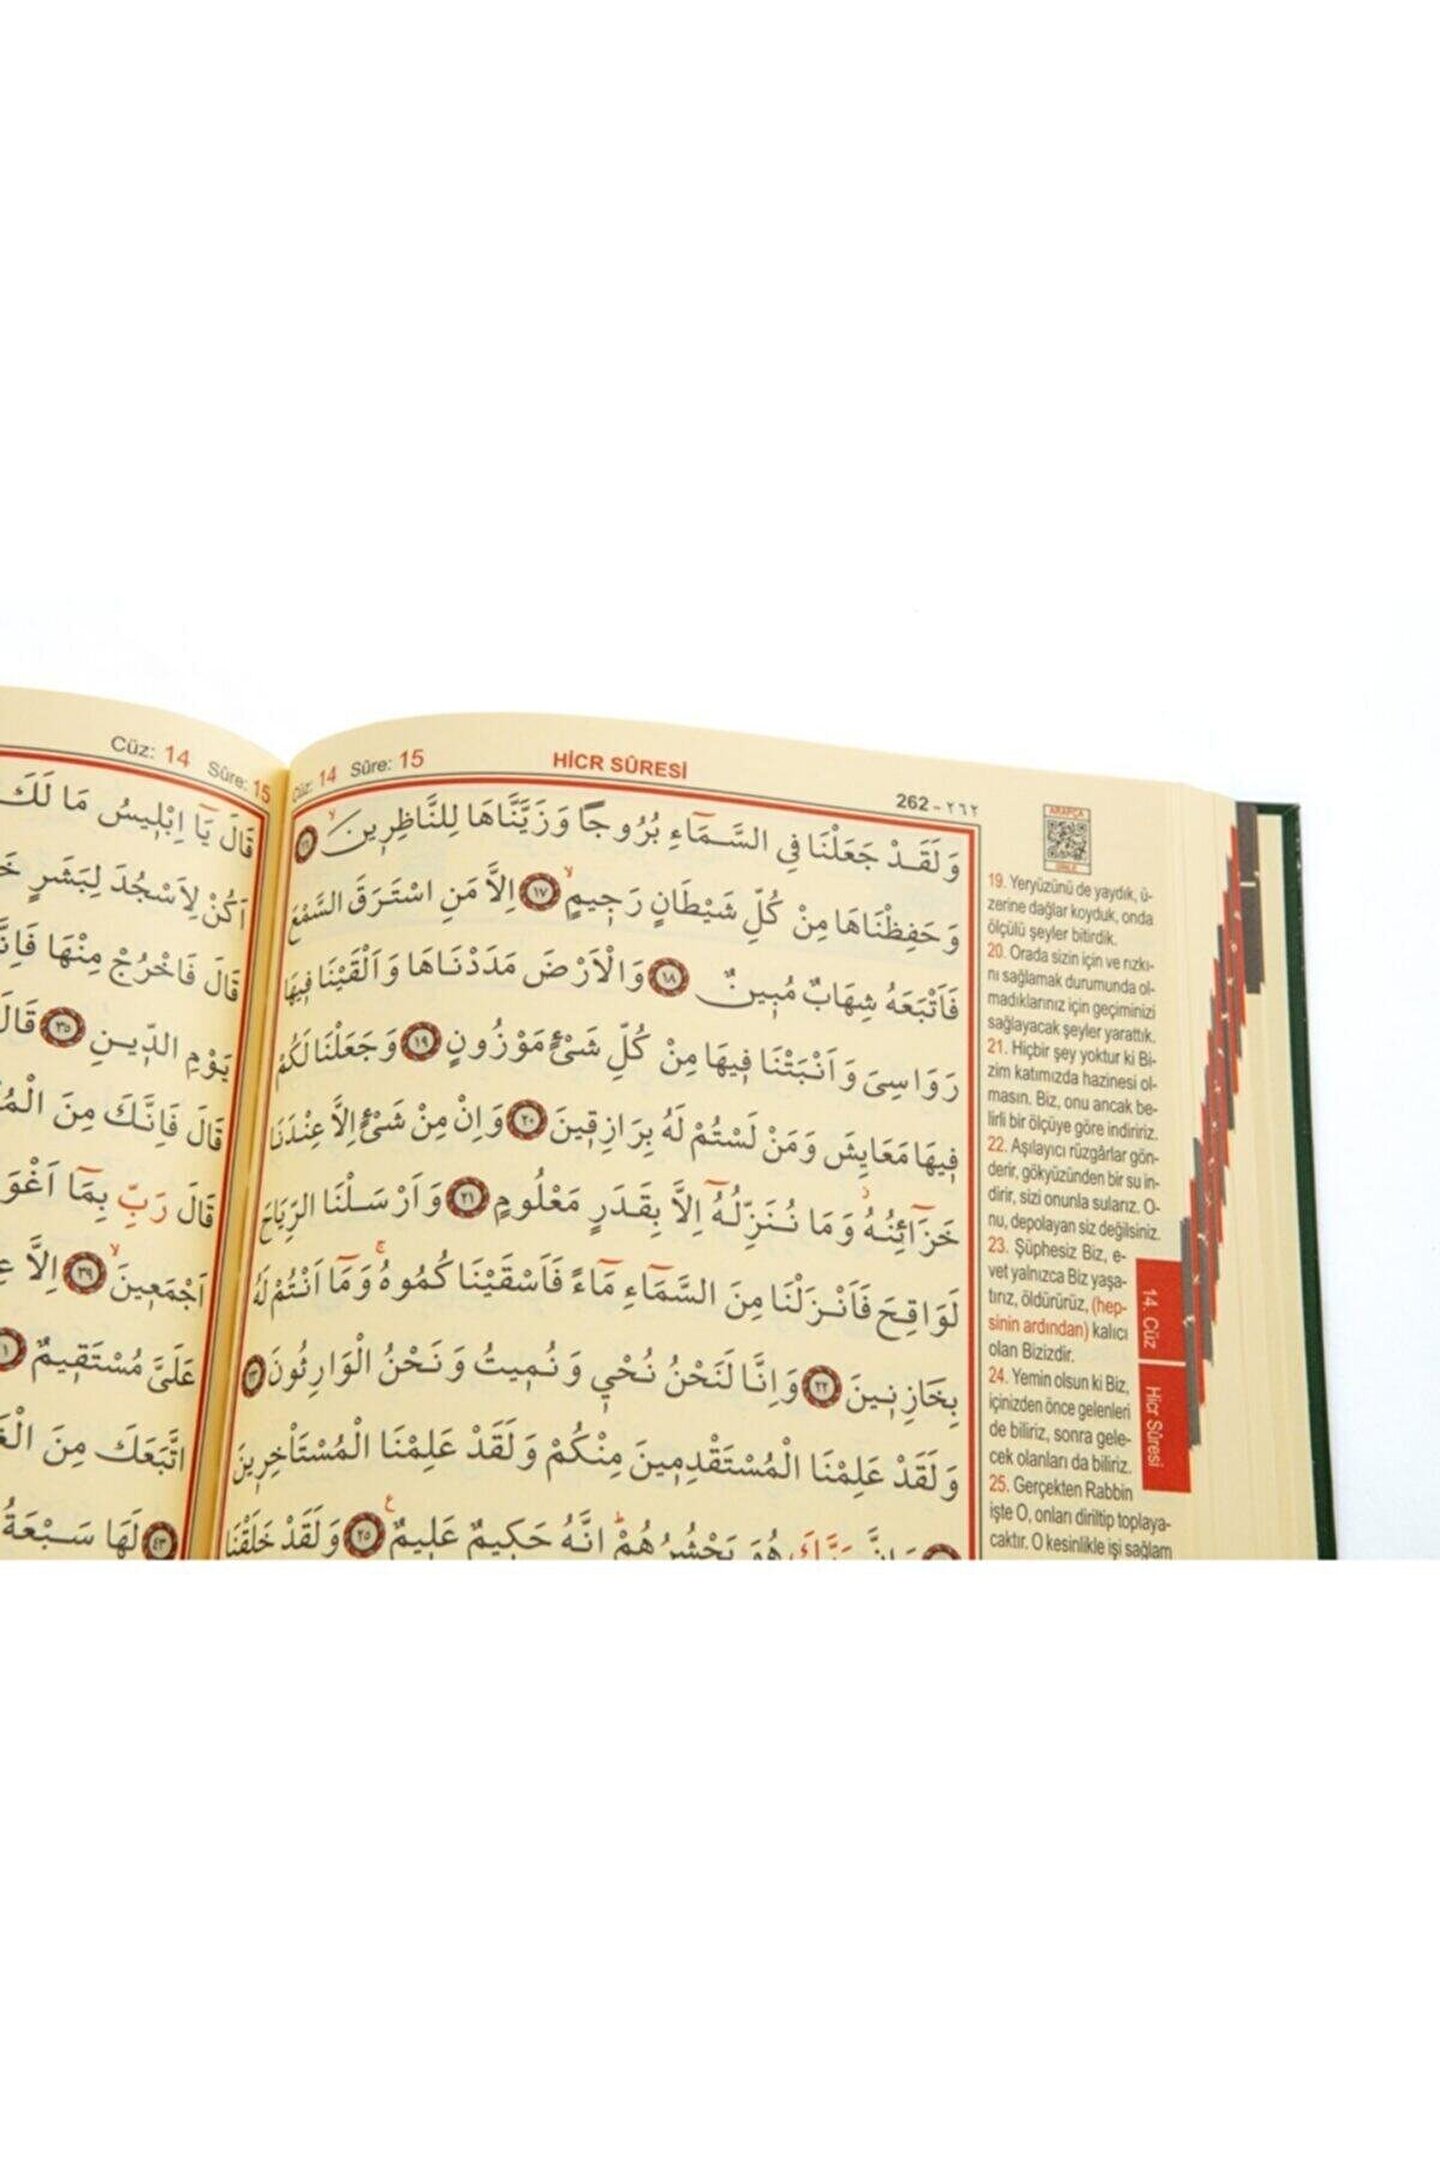 Cüz: 14 Sûre: 15
قَالَ يَٓا اِبْلٖيسُ مَا لَكَ
اَكُنْ لِاَسْجُدَ لِبَشَرٍ
قَالَ فَاخْرُجْ مِنْهَا
يَوْمِ الدّٖينِ ﴿٣٥﴾ قَالَ
قَالَ فَاِنَّكَ مِنَ
قَالَ رَبِّ بِمَٓا
اَجْمَعٖينَ ﴿٣٩﴾ اِلَّا
عَلَيَّ مُسْتَقٖيمٌ
اتَّبَعَكَ مِنَ
﴿٤٣﴾ لَهَا سَبْعَةُ
Cüz: 14 Sûre: 15 HİCR SÛRESİ 262 - ٢٦٢
وَلَقَدْ جَعَلْنَا فِي السَّمَٓاءِ بُرُوجًا وَزَيَّنَّاهَا لِلنَّاظِرٖينَ ﴿١٦﴾
وَحَفِظْنَاهَا مِنْ كُلِّ شَيْطَانٍ رَجٖيمٍ ﴿١٧﴾ اِلَّا مَنِ اسْتَرَقَ السَّمْعَ
فَاَتْبَعَهُ شِهَابٌ مُبٖينٌ ﴿١٨﴾ وَالْاَرْضَ مَدَدْنَاهَا وَاَلْقَيْنَا فٖيهَا
رَوَاسِيَ وَاَنْبَتْنَا فٖيهَا مِنْ كُلِّ شَيْءٍ مَوْزُونٍ ﴿١٩﴾ وَجَعَلْنَا لَكُمْ
فٖيهَا مَعَايِشَ وَمَنْ لَسْتُمْ لَهُ بِرَازِقٖينَ ﴿٢٠﴾ وَاِنْ مِنْ شَيْءٍ اِلَّا عِنْدَنَا
خَزَٓائِنُهُ وَمَا نُنَزِّلُهُٓ اِلَّا بِقَدَرٍ مَعْلُومٍ ﴿٢١﴾ وَاَرْسَلْنَا الرِّيَاحَ
لَوَاقِحَ فَاَنْزَلْنَا مِنَ السَّمَٓاءِ مَٓاءً فَاَسْقَيْنَاكُمُوهُ وَمَٓا اَنْتُمْ لَهُ
بِخَازِنٖينَ ﴿٢٢﴾ وَاِنَّا لَنَحْنُ نُحْيٖ وَنُمٖيتُ وَنَحْنُ الْوَارِثُونَ ﴿٢٣﴾
وَلَقَدْ عَلِمْنَا الْمُسْتَقْدِمٖينَ مِنْكُمْ وَلَقَدْ عَلِمْنَا الْمُسْتَأْخِرٖينَ
وَاِنَّ رَبَّكَ هُوَ يَحْشُرُهُمْ اِنَّهُ حَكٖيمٌ عَلٖيمٌ ﴿٢٥﴾ وَلَقَدْ خَلَقْنَا
ARAPÇA
DİNLE
19. Yeryüzünü de yaydık, ü-
zerine dağlar koyduk, onda
ölçülü şeyler bitirdik.
20. Orada sizin için ve rızkı-
nı sağlamak durumunda ol-
madıklarınız için geçiminizi
sağlayacak şeyler yarattık.
21. Hiçbir şey yoktur ki Bi-
zim katımızda hazinesi ol-
masın. Biz, onu ancak be-
lirli bir ölçüye göre indiririz.
22. Aşılayıcı rüzgârlar gön-
derir, gökyüzünden bir su in-
dirir, sizi onunla sularız. O-
nu, depolayan siz değilsiniz.
23. Şüphesiz Biz, e-
vet yalnızca Biz yaşa-
tırız, öldürürüz, (hep-
sinin ardından) kalıcı
olan Bizizdir.
24. Yemin olsun ki Biz,
içinizden önce gelenleri
de biliriz, sonra gele-
cek olanları da biliriz.
25. Gerçekten Rabbin
işte O, onları diriltip toplaya-
caktır. O kesinlikle işi sağlam
14. Cüz
Hicr Sûresi